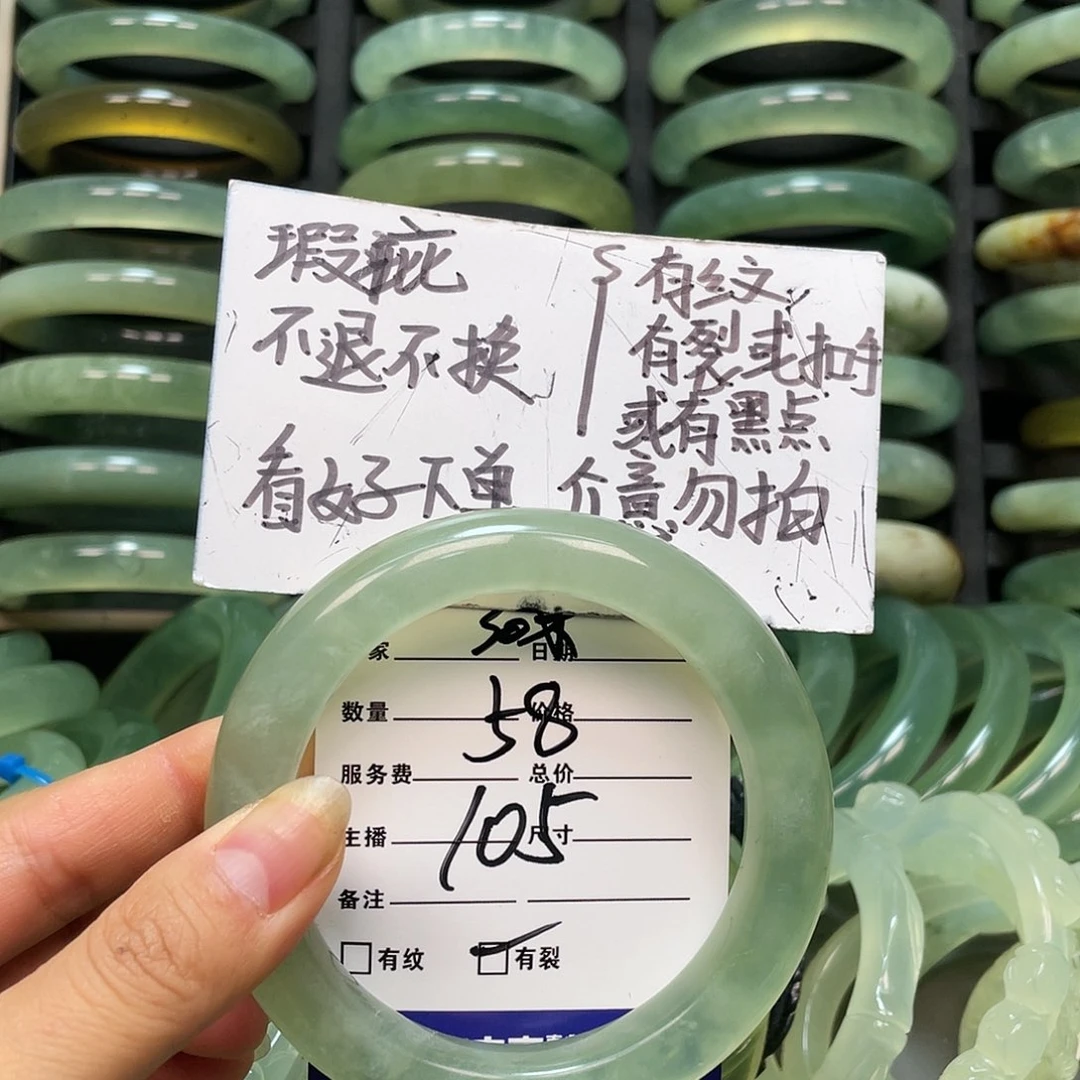 瑕疵
不退不换
看好下单
有纹
有裂或扣手
或有黑点
介意勿拍
家 日期
58
数量 价格
服务费 总价
105
主播 尺寸
备注
有纹 有裂